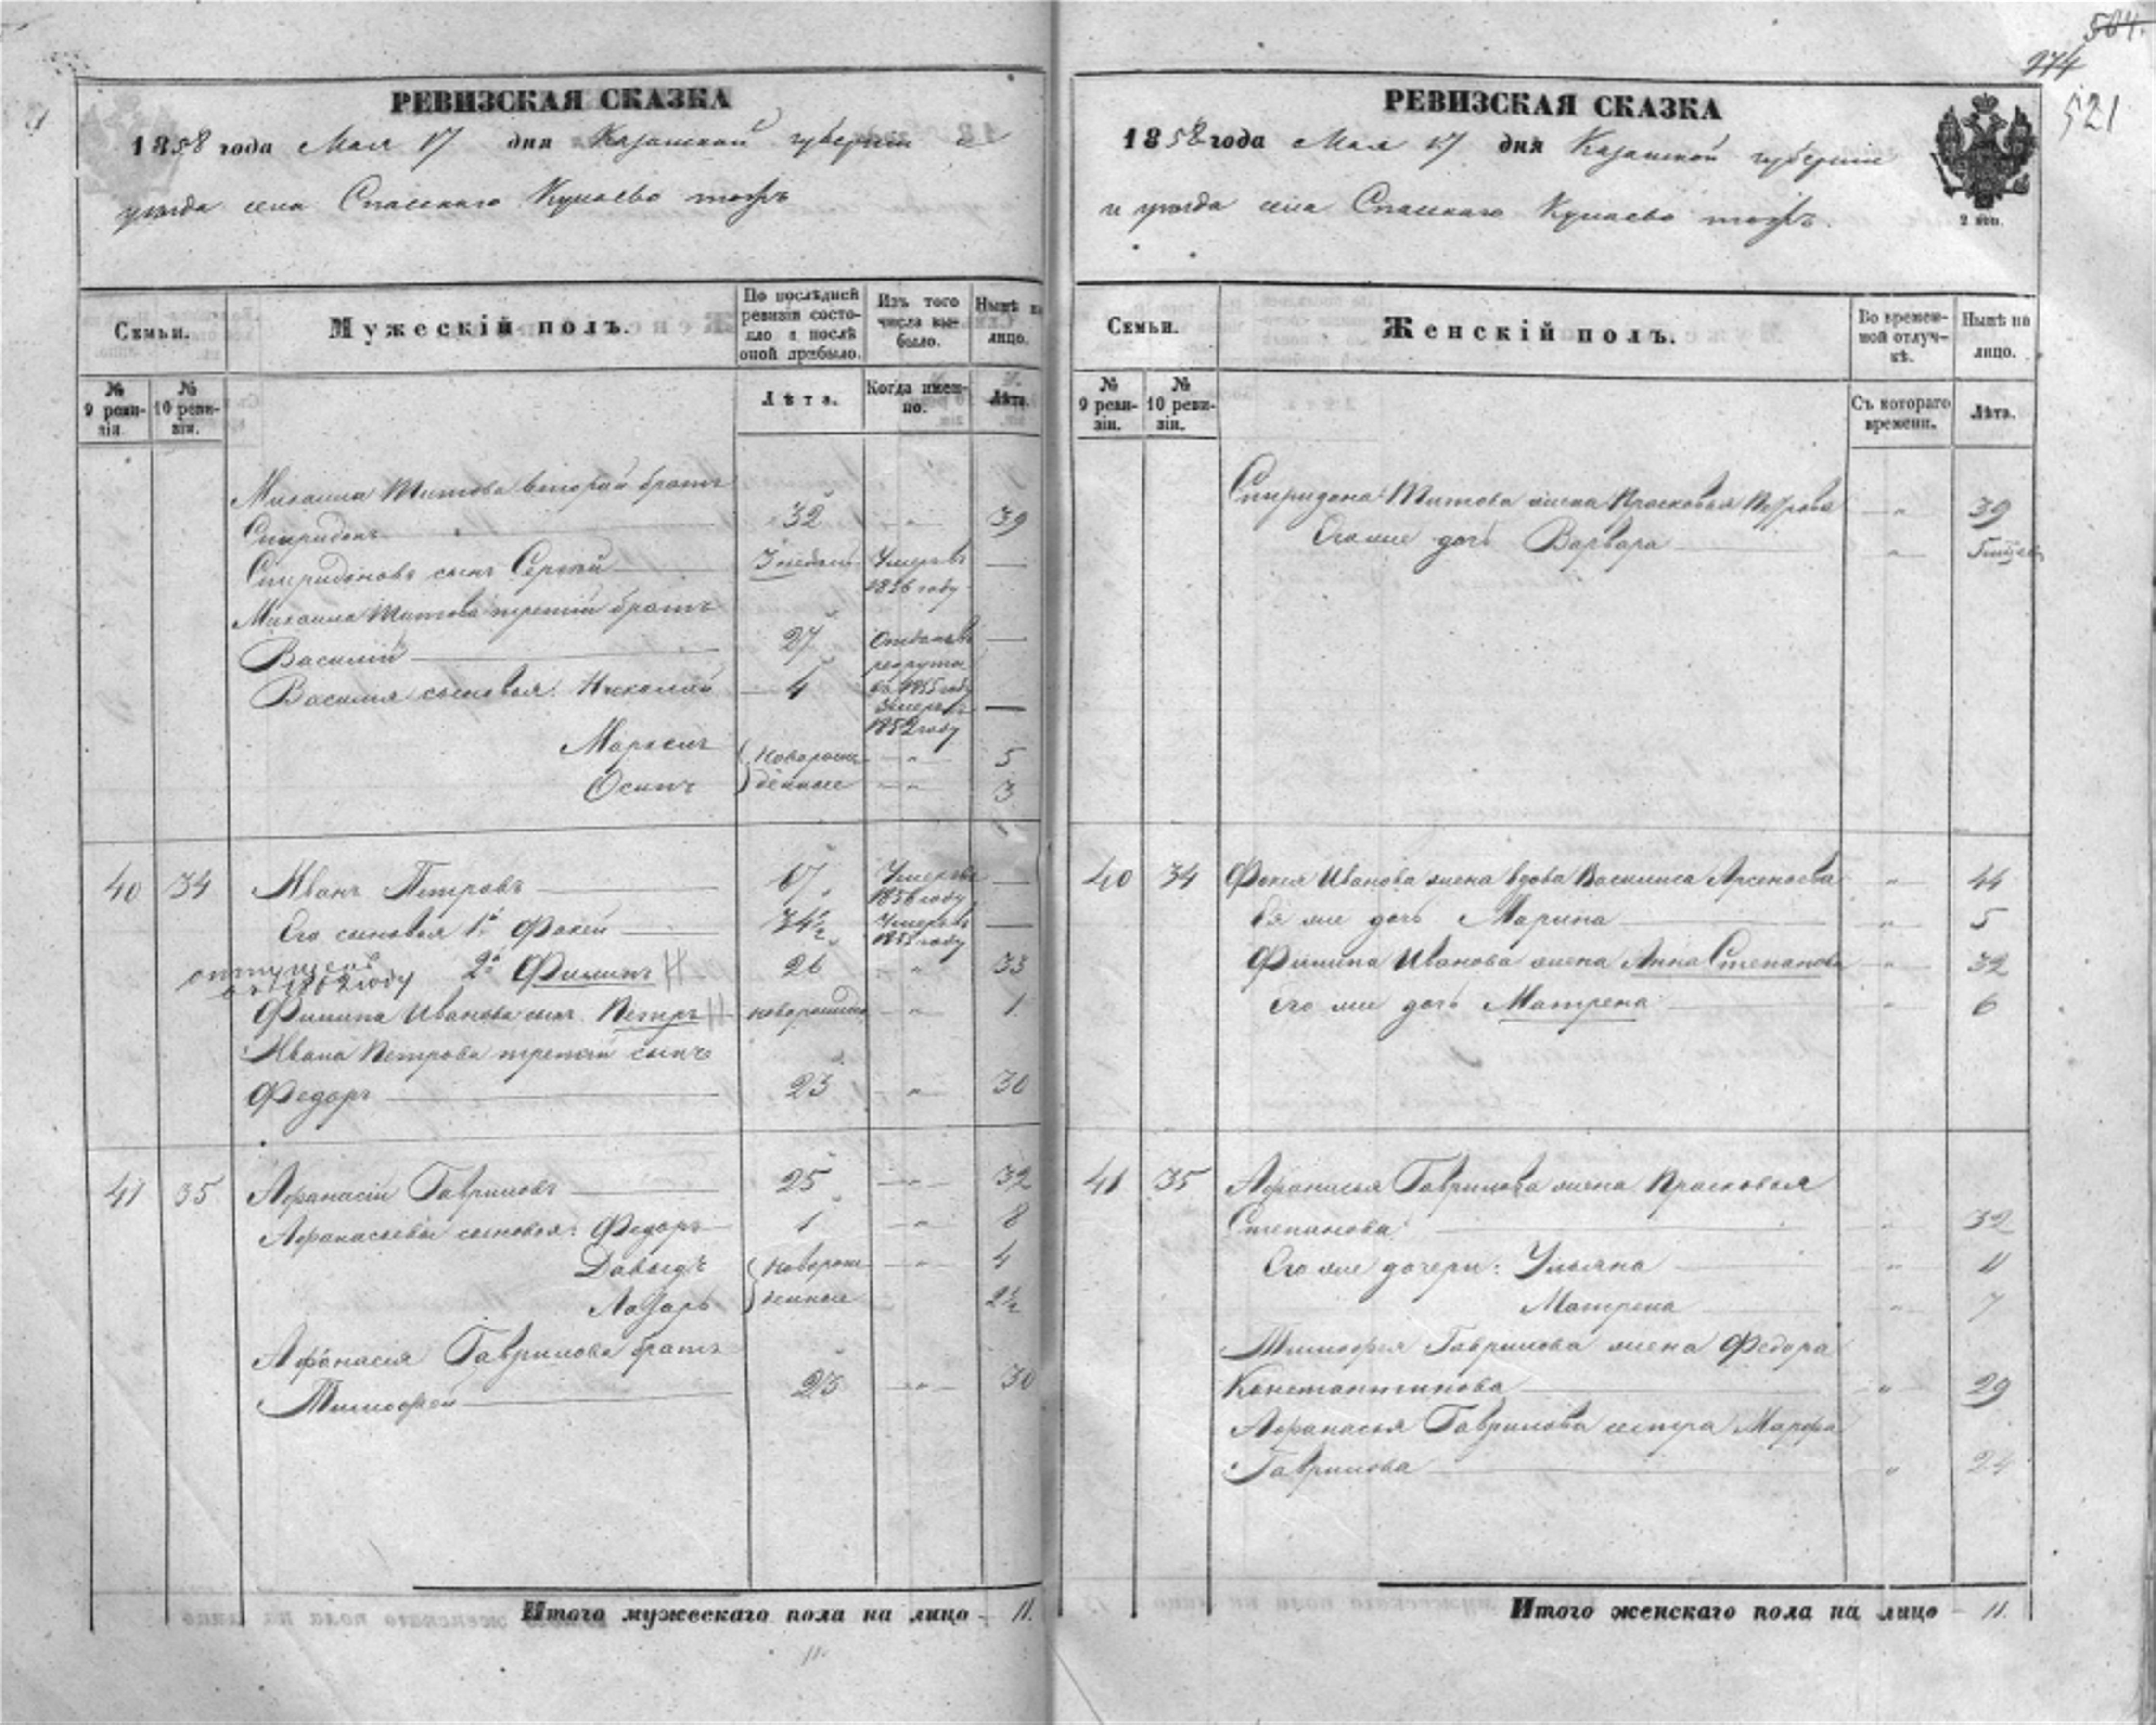 504.
274
521
РЕВИЗСКАЯ СКАЗКА
1858 года Мая 17 дня Казанской губернии и
уезда села Спаскаго Кукаево тожъ
Семьи.
Мужескій полъ.
По послѣдней ревизіи состояло и послѣ оной прибыло.
Изъ того числа выбыло.
Нынѣ на лицо.
№ 9 ревизіи.
№ 10 ревизіи.
Лѣта.
Когда именно.
Лѣта.
Михаила Титова второй братъ
Спиридонъ 32 " 39
Спиридоновъ сынъ Сергей 3 недель Умеръ въ —
1856 году
Михаила Титова третій братъ
Василій 27 Отданъ въ —
рекруты
Василия сыновья: Николай 4 въ 1855 году
Умеръ въ —
1852 году
Маркелъ новорож " 5
Осипъ денные " 3
40 34 Иванъ Петровъ 67 Умеръ въ —
1856 году
Его сыновья 1й Фокей 34½ Умеръ въ —
1855 году
2й Филипъ 26 " 33
отпущен
въ 1862 году
Филипа Иванова сынъ Петръ новорожден " 1
Ивана Петрова третій сынъ
Федоръ 23 " 30
41 35 Афанасій Гавриловъ 25 " 32
Афанасьевы сыновья: Федоръ 1 " 8
Давыдъ новорож " 4
Лазарь денные 2½
Афанасия Гаврилова братъ
Тимофей 23 " 30
Итого мужескаго пола на лицо 11.
11.
РЕВИЗСКАЯ СКАЗКА
1858 года Мая 17 дня Казанской губерніи
и уезда села Спаскаго Кукаево тожъ.
2 коп.
Семьи.
Женскій полъ.
Во временной отлучкѣ.
Нынѣ на лицо.
№ 9 ревизіи.
№ 10 ревизіи.
Съ котораго времени.
Лѣта.
Спиридона Титова жена Прасковья Петрова " 39
Его же дочь Варвара "
40 34 Фокея Иванова жена вдова Василиса Арсеньева " 44
Ея же дочь Марина " 5
Филипа Иванова жена Анна Степанова " 32
Его же дочь Матрена " 6
41 35 Афанасья Гаврилова жена Прасковья
Степанова " 32
Его же дочери: Ульяна " 11
Матрена " 7
Тимофея Гаврилова жена Федора
Константинова " 29
Афанасья Гаврилова сестра Марфа
Гаврилова " 24
Итого женскаго пола на лицо 11.